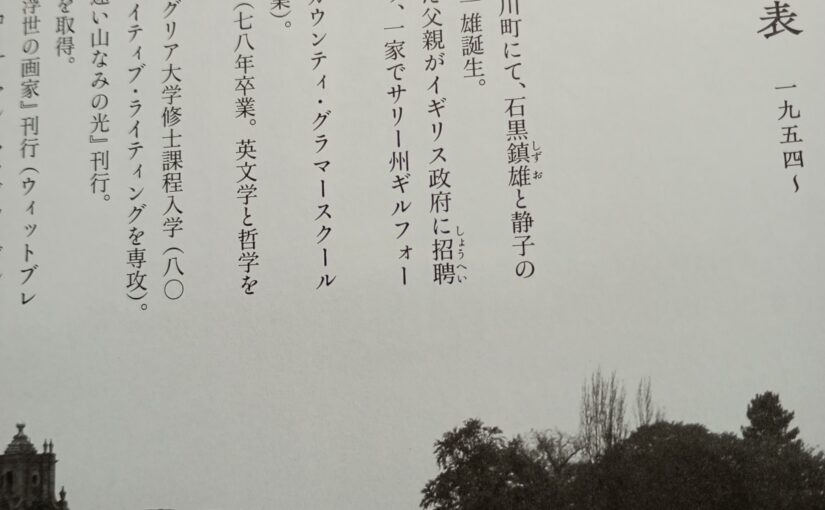 表
一九五四~
川町にて、石黒鎮雄と静子の
しずお
一雄誕生。
父親がイギリス政府に招聘
しょうへい
、一家でサリー州ギルフォー
業)。
カウンティ・グラマースクール
(七八年卒業。英文学と哲学を
グリア大学修士課程入学(八〇
イティブ・ライティングを専攻)。
遠い山なみの光』刊行。
を取得。
浮世の画家』刊行(ウィットブレ